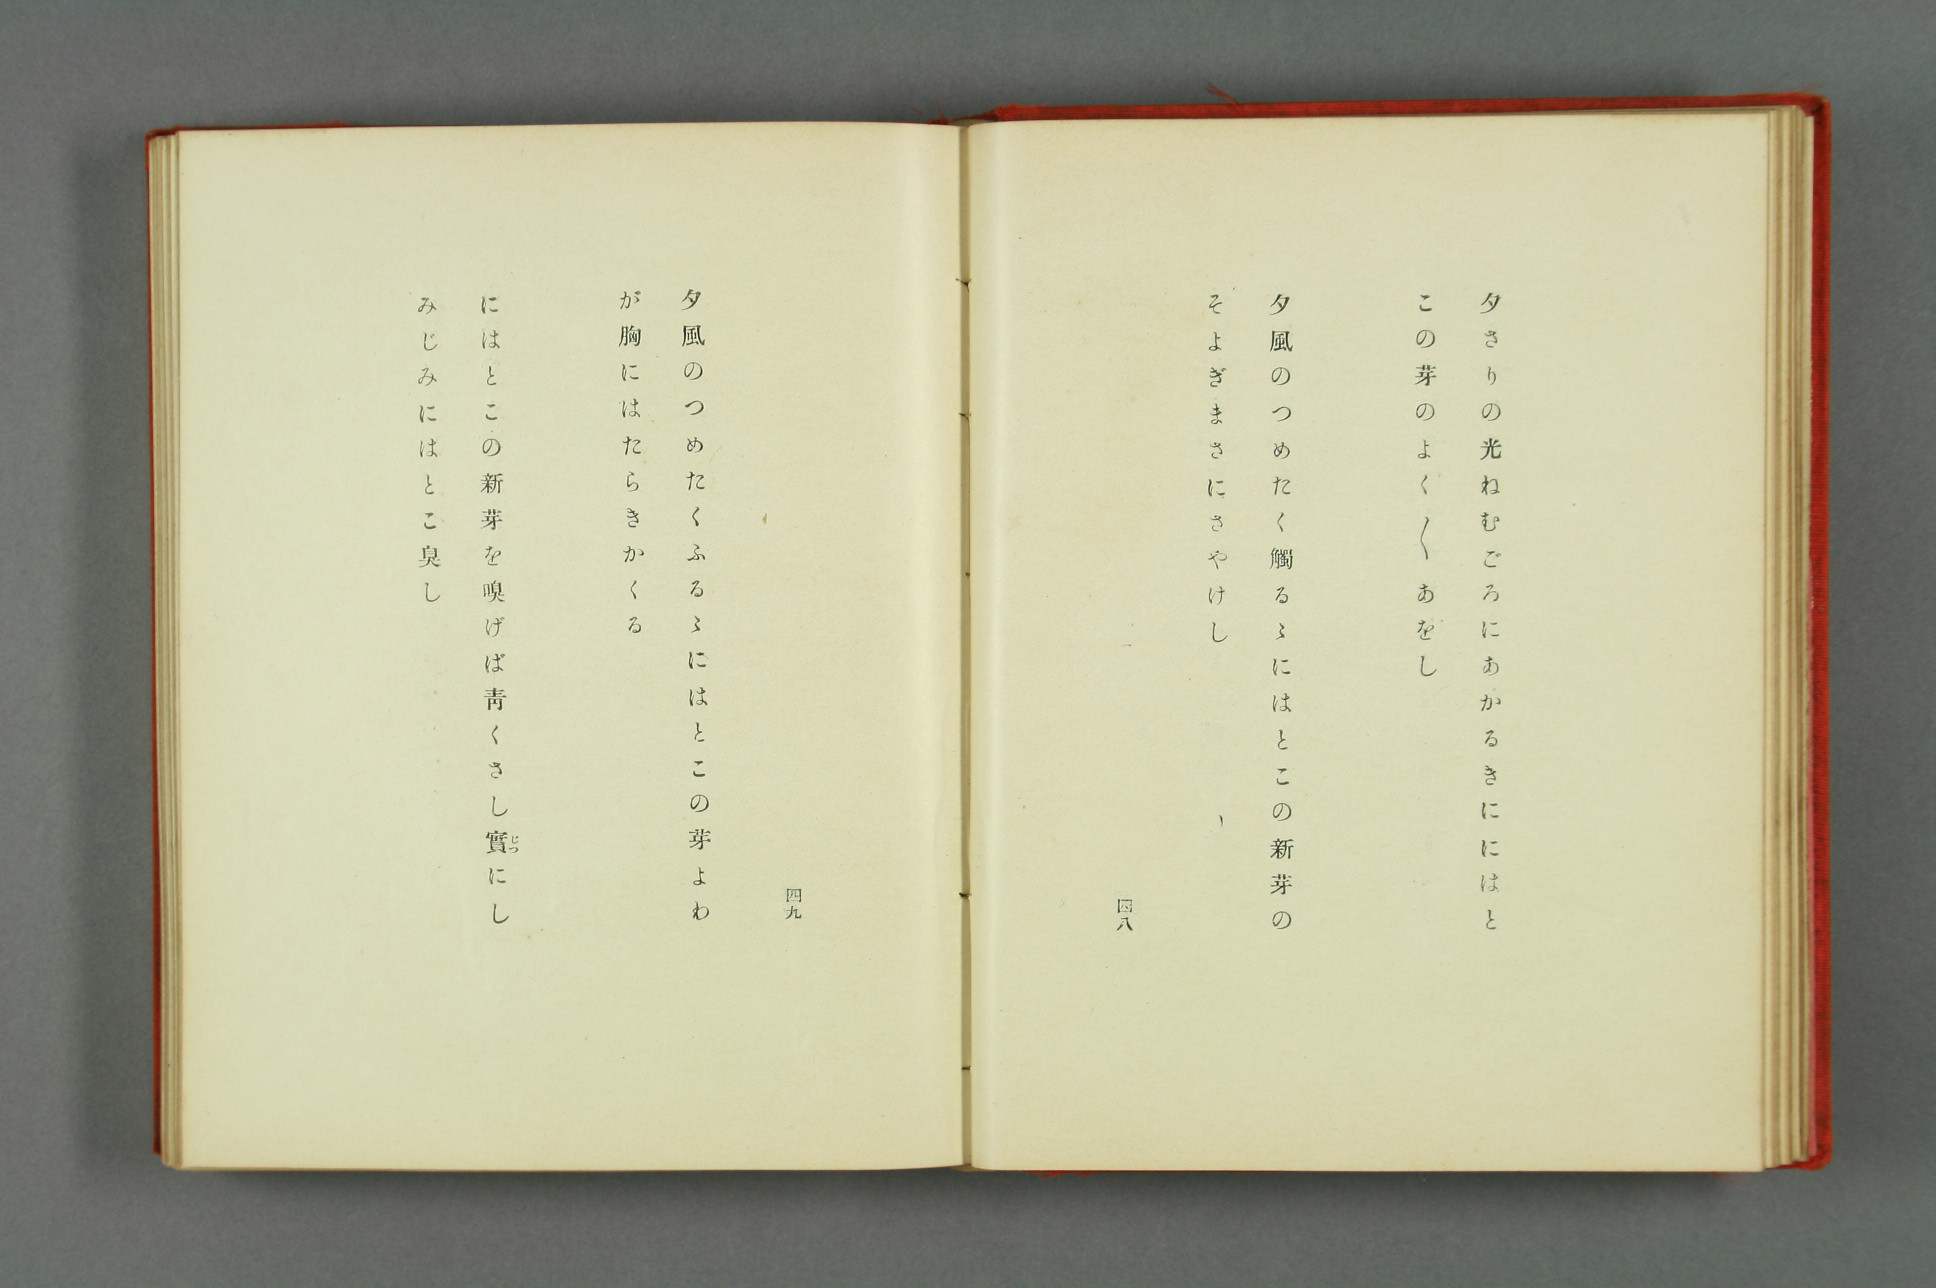 夕さりの光ねむごろにあかるきににはと
この芽のよく〳〵あをし
夕風のつめたく觸るゝにはとこの新芽の
そよぎまさにさやけし
四八
四九
夕風のつめたくふるゝにはとこの芽よわ
が胸にはたらきかくる
にはとこの新芽を嗅げば靑くさし實じつにし
みじみにはとこ臭し